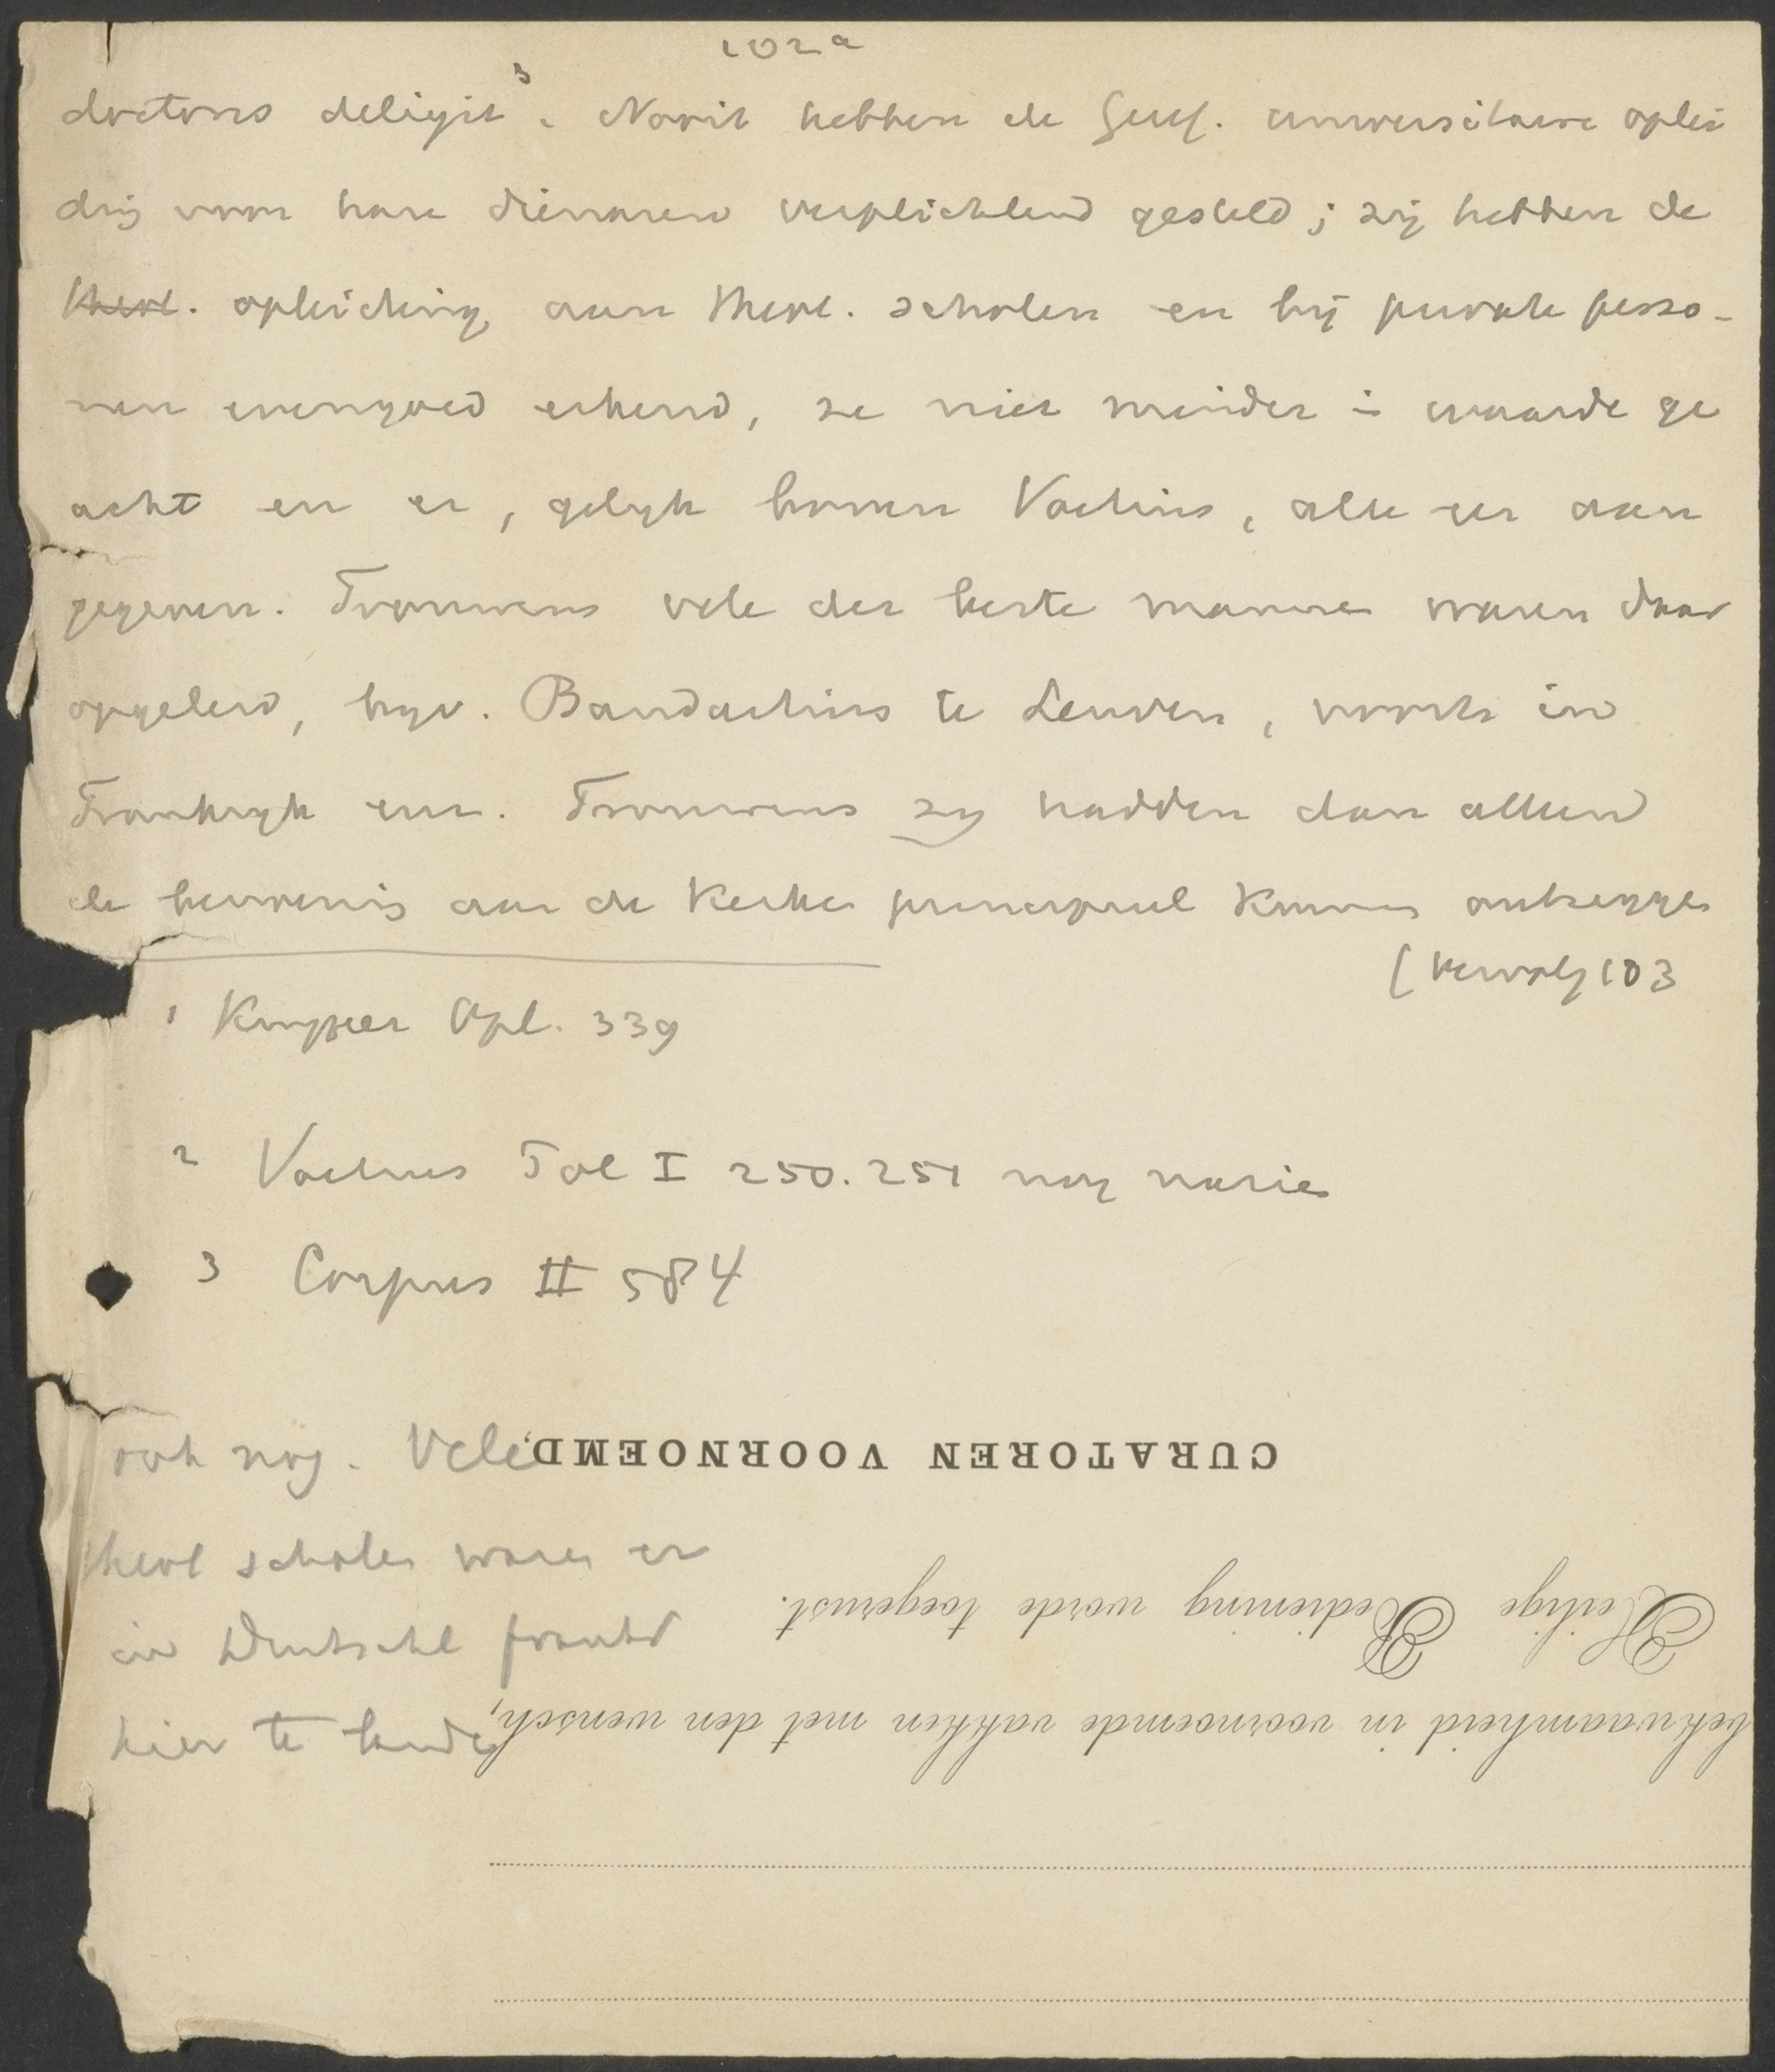 102a
doctores deligit ³. Nooit hebben de Geref. universitaire oplei
ding voor hare dienaren verplichtend gesteld; zij hebben de
theol. opleiding aan theol. scholen en bij private perso-
nen evengoed erkend, ze niet minder in waarde ge
acht en er, gelijk boven Voetius, alle eer aan
gegeven. Trouwens vele der beste mannen waren daar
opgeleid, bijv. Baudartius te Leuven, voorts in
Frankrijk enz. Trouwens zij hadden dan alleen
de bevoegdheid aan de Kerken principieel kunnen ontzeggen
[vervolg 103
1 Kuyper Opl. 339
2 Voetius Pol I 250. 251 nog nazien
3 Corpus II 584
ook nog. Vele
theol scholen waren er
in Duitschl frankr
hier te lande
CURATOREN VOORNOEMD,
Heilige Bediening worde toegerust.
bekwaamheid in voornoemde vakken met den wensch,